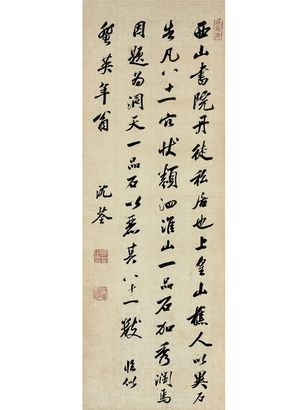 西山書院丹徒私居也上皇山樵人以異石
告凡八十一穴狀類泗淮山一品石加秀潤焉
因題為洞天一品石以丕其八十一數 臨似
聖英年翁
沈荃